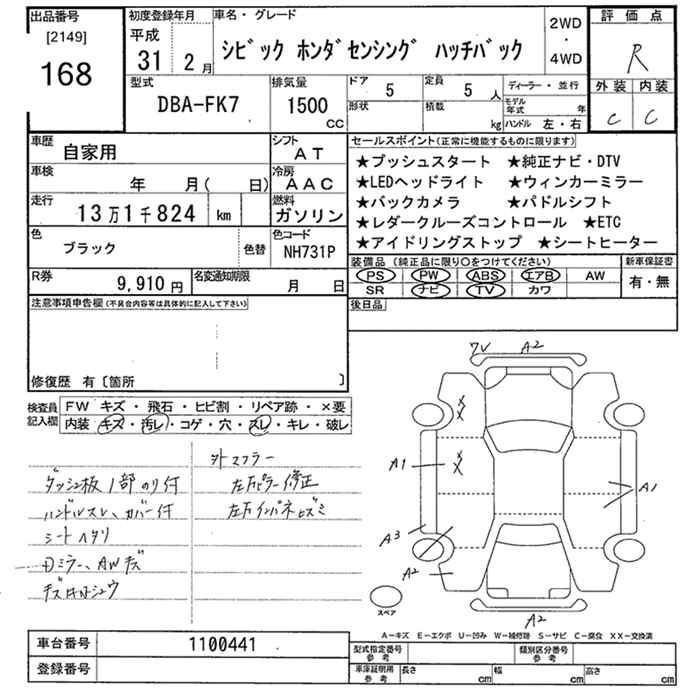 出品番号
[2149]
168
初度登録年月
平成
31 2月
車名・グレード
シビック ホンダセンシング ハッチバック
2WD
・
4WD
評価点
R
外装 内装
C C
型式
DBA-FK7
排気量
1500
CC
ドア
5
定員
5 人
形状
積載
kg
ディーラー・並行
モデル
年式 年
ハンドル 左・右
車歴
自家用
シフト
AT
車検
年 月( 日)
冷房
AAC
走行
13万1千824 km
燃料
ガソリン
色
ブラック
色替
色コード
NH731P
R券
9,910円
名変通知期限
月 日
セールスポイント(正常に機能するものに限ります)
★プッシュスタート ★純正ナビ・DTV
★LEDヘッドライト ★ウィンカーミラー
★バックカメラ ★パドルシフト
★レダークルーズコントロール ★ETC
★アイドリングストップ ★シートヒーター
装備品(純正品に限り○をつけてください)
新車保証書
PS PW ABS エアB AW
SR ナビ TV カワ
有・無
後日品
注意事項申告欄(不具合内容等は具体的に記入して下さい)
修復歴 有〔箇所 〕
検査員
記入欄
FW キズ・飛石・ヒビ割・リペア跡・×要
内装 キズ・汚レ・コゲ・穴・スレ・キレ・破レ
外マフラー
ダッシュ板1部のり付
左Fピラー修正
ハンドルスレ、カバー付
左Fインパネヒズミ
シートヘタリ
Dミラー、AWキズ
キズ
ワレ A2
A1
A1
A3
A2
A2
スペア
A−キズ E−エクボ U−凹み W−補修跡 S−サビ C−腐食 XX−交換済
車台番号
1100441
登録番号
型式指定番号
参考
類別区分番号
参考
車庫証明用
参考
長さ cm
幅 cm
高さ cm